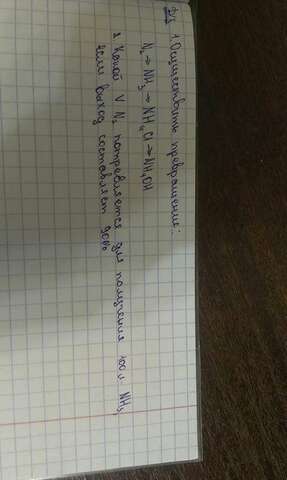 Дз 1. Осуществить превращение:
N₂ → NH₃ → NH₄Cl → NH₄OH
2 Какой V N₂ потребляется для получения 100 л NH₃,
если выход составляет 90%